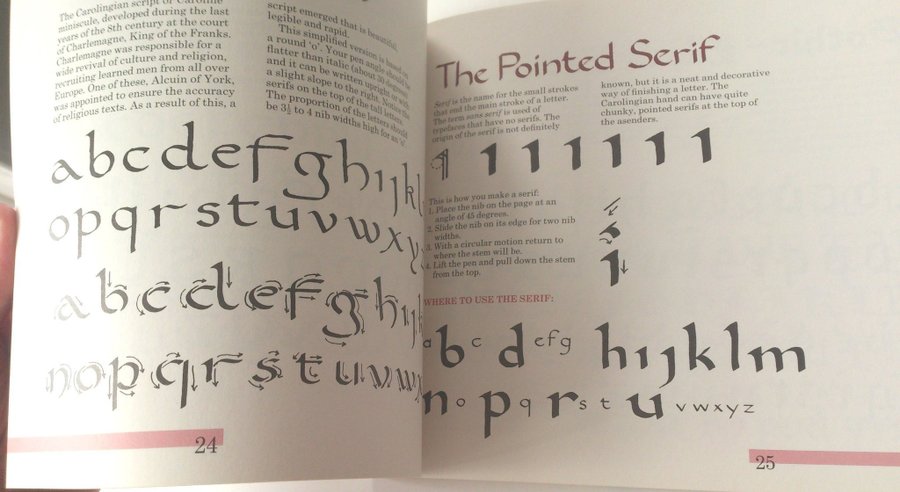 The Carolingian script or Caroline
miniscule, developed during the last
years of the 8th century at the court
of Charlemagne, King of the Franks.
Charlemagne was responsible for a
wide revival of culture and religion,
recruiting learned men from all over
Europe. One of these, Alcuin of York,
was appointed to ensure the accuracy
of religious texts. As a result of this, a
script emerged that is beautiful,
legible and rapid.
This simplified version is based on
a round 'o'. Your pen angle should be
flatter than italic (about 30 degrees)
and it can be written upright or with
a slight slope to the right. Notice the
serifs on the top of the tall letters.
The proportion of the letters should
be 3½ to 4 nib widths high for an 'o'.
abcdefghıjkl
opqrstuvwxy
abcdefghıj
nopqrstuvw
24
The Pointed Serif
Serif is the name for the small strokes
that end the main stroke of a letter.
The term sans serif is used of
typefaces that have no serifs. The
origin of the serif is not definitely
known, but it is a neat and decorative
way of finishing a letter. The
Carolingian hand can have quite
chunky, pointed serifs at the top of
the asenders.
This is how you make a serif:
1. Place the nib on the page at an
angle of 45 degrees.
2. Slide the nib on its edge for two nib
widths.
3. With a circular motion return to
where the stem will be.
4. Lift the pen and pull down the stem
from the top.
WHERE TO USE THE SERIF:
a b c d e f g h ı j k l m
n o p q r s t u v w x y z
25